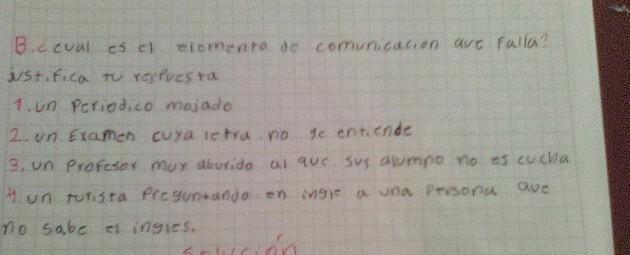 B. ¿cual es el elemento de comunicacion que falla?
justifica tu respuesta
1. un Periodico mojado
2. un Examen cuya letra no se entiende
3. un Profesor muy aburido al que sus alumno no escucha
4 un turista Preguntando en ingle a una persona que
no sabe el ingles.
solución